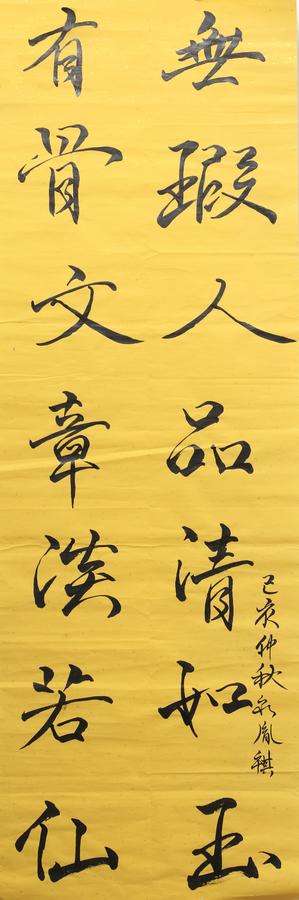 無瑕人品清如玉
有骨文章淡若仙
己亥仲秋
胤祺